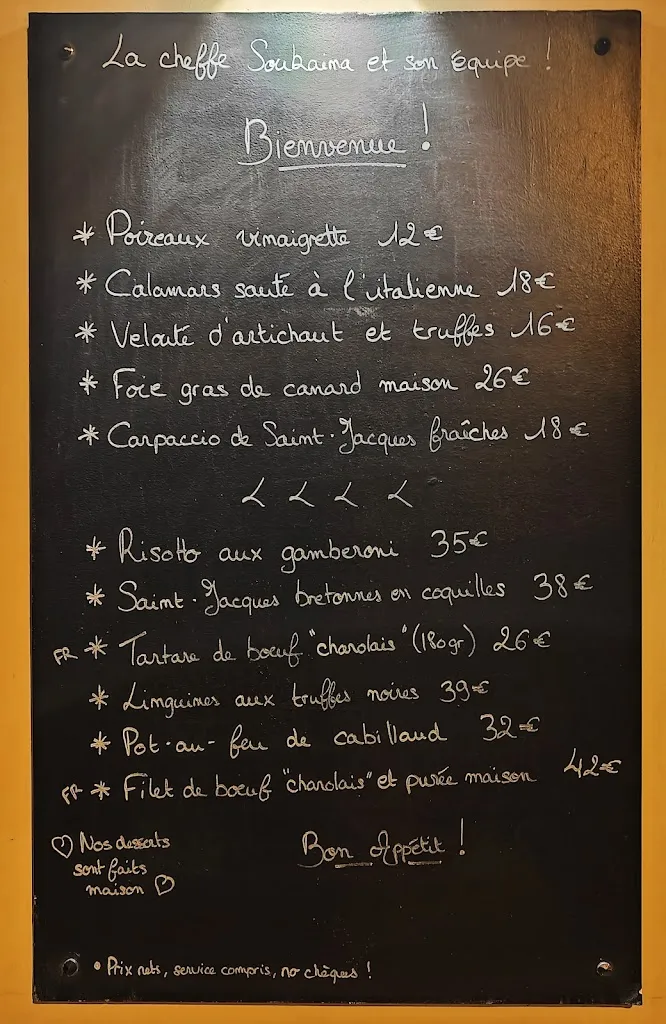 La cheffe Soukaina et son équipe !
Bienvenue !
* Poireaux vinaigrette 12€
* Calamars sauté à l'italienne 18€
* Velouté d'artichaut et truffes 16€
* Foie gras de canard maison 26€
* Carpaccio de Saint-Jacques fraîches 18€
< < < <
* Risotto aux gamberoni 35€
* Saint-Jacques bretonnes en coquilles 38€
FR * Tartare de bœuf "charolais" (180gr) 26€
* Linguines aux truffes noires 39€
* Pot-au-feu de cabillaud 32€
FR * Filet de bœuf "charolais" et purée maison 42€
♡ Nos desserts
sont faits
maison ♡
Bon Appétit !
• Prix nets, service compris, no chèques !